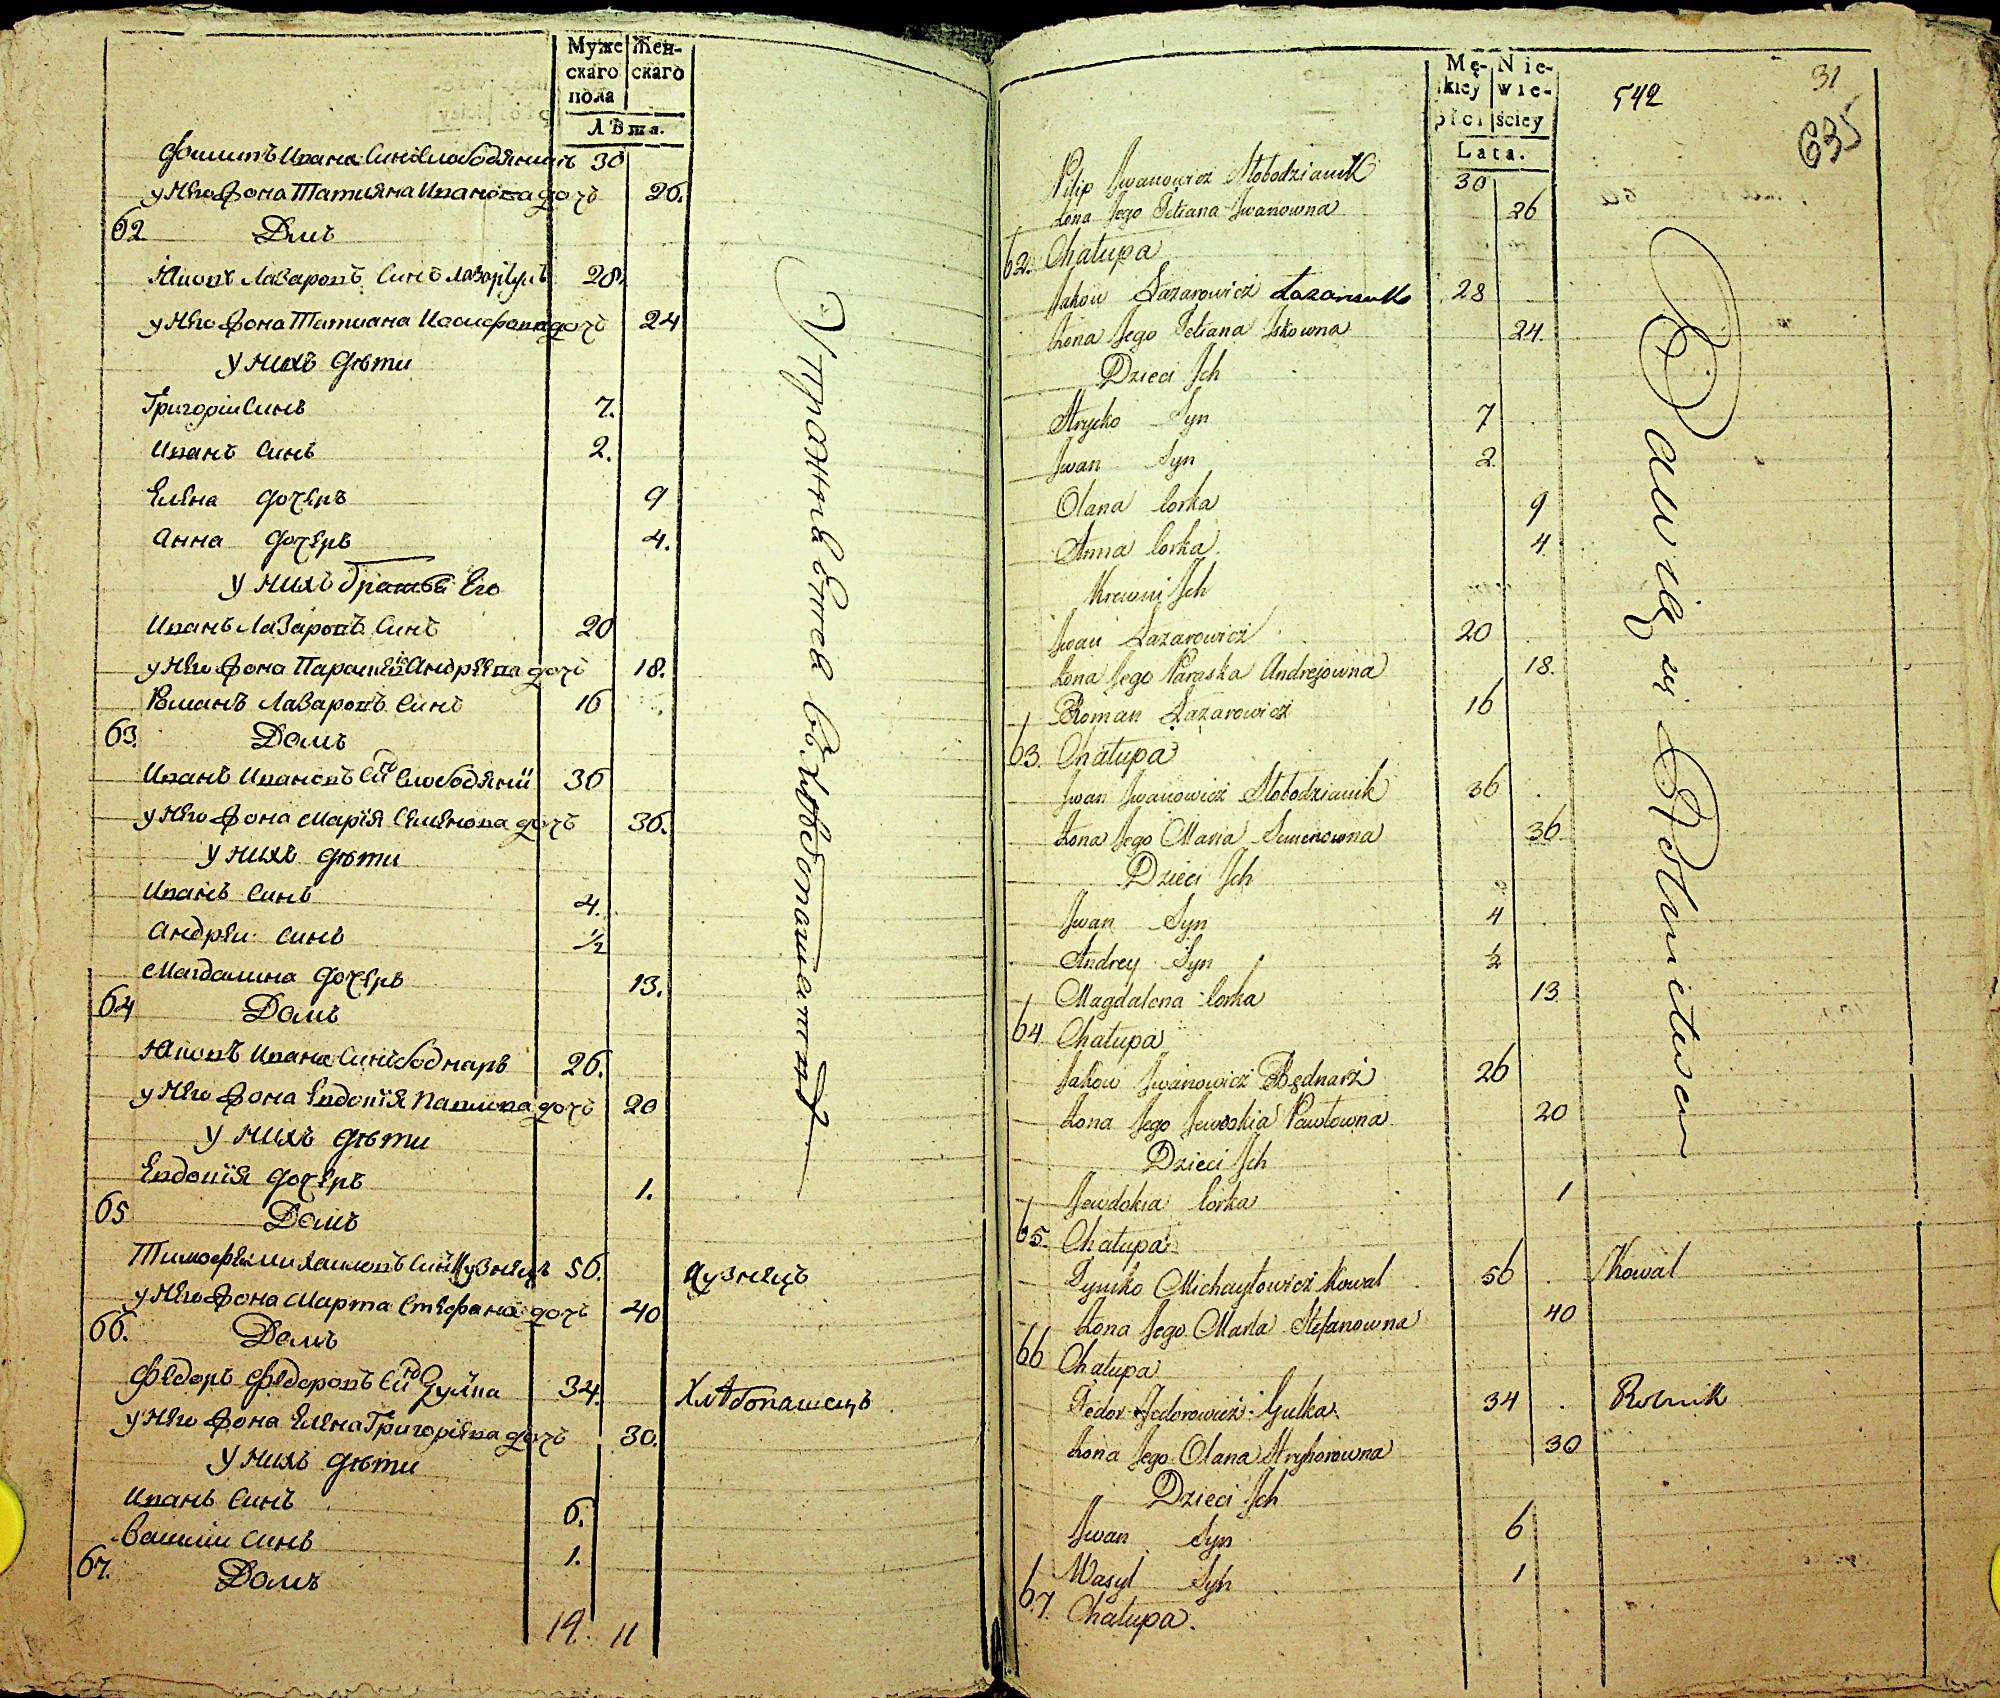 Муже Жен-
скаго скаго
пола
Лѣта.
Филипъ Ивана Синъ Слободянинъ 30
у Него Жона Татияна Иванова дочъ 26.
62 Домъ
Яковъ Лазаровъ Синъ 28.
у Него Жона Татиана дочъ 24
У нихъ дѣти
Григорій Синъ 7.
Иванъ Синъ 2.
Елена дочеръ 9
Анна дочеръ 4.
У нихъ братья Его
Иванъ Лазаровъ Синъ 20
у Него Жона Параскевія Андреева дочъ 18.
Романъ Лазаровъ Синъ 16
63. Домъ
Иванъ Ивановъ Синъ 36
у Него Жона Марія Семенова дочъ 36.
У нихъ дѣти
Иванъ Синъ 4.
Андреи Синъ 1/2
Магдалина дочеръ 13.
64 Домъ
Яковъ Ивана Синъ Боднаръ 26.
у Него Жона Евдокія Павлова дочъ 20
У нихъ дѣти
Евдокія дочеръ 1.
65 Домъ
Тимофеи Михаиловъ Синъ Кузнецъ 56. Кузнецъ
у Него Жона Марта Стефана дочъ 40
66. Домъ
Федоръ Федоровъ Синъ Гулка 34. Хлѣбопашецъ
у Него Жона Елена Григоріева дочъ 30.
У нихъ дѣти
Иванъ Синъ 6.
Василии Синъ 1.
67. Домъ
19. 11
Упражняется в Хлѣбопашествѣ
Mę- Nie-
kiey wie-
płci ściey
Lata.
542
31
635
Filip Iwanowicz Słobodzianik 30
Żona Jego Tetiana Iwanowna 26
62. Chałupa
Jakow Łazarowicz 28
Żona Jego Tetiana Iśkowna 24.
Dzieci Ich
Hryćko Syn 7
Iwan Syn 2.
Olana Corka 9
Anna Corka 4.
Krewni Ich
Iwan Łazarowicz 20
Żona Jego Paraska Andrejowna 18.
Roman Łazarowicz 16
63. Chałupa
Iwan Iwanowicz Słobodzianik 36
Żona Jego Maria Semenowna 36.
Dzieci Ich
Iwan Syn 4
Andrey Syn 1/2
Magdalena Corka 13
64 Chałupa
Jakow Iwanowicz Bednarz 26
Żona Jego Jewdokia Pawłowna 20
Dzieci Ich
Jewdokia Corka 1
65. Chałupa
Tymko Michayłowicz Kowal 56 Kowal
Żona Jego Marta Stefanowna 40
66 Chałupa
Fedor Fedorowicz Gulka 34 Rolnik
Żona Jego Olana Hryhorowna 30
Dzieci Ich
Iwan Syn 6
Wasyl Syn 1
67. Chałupa.
Bawią się Rolnictwem